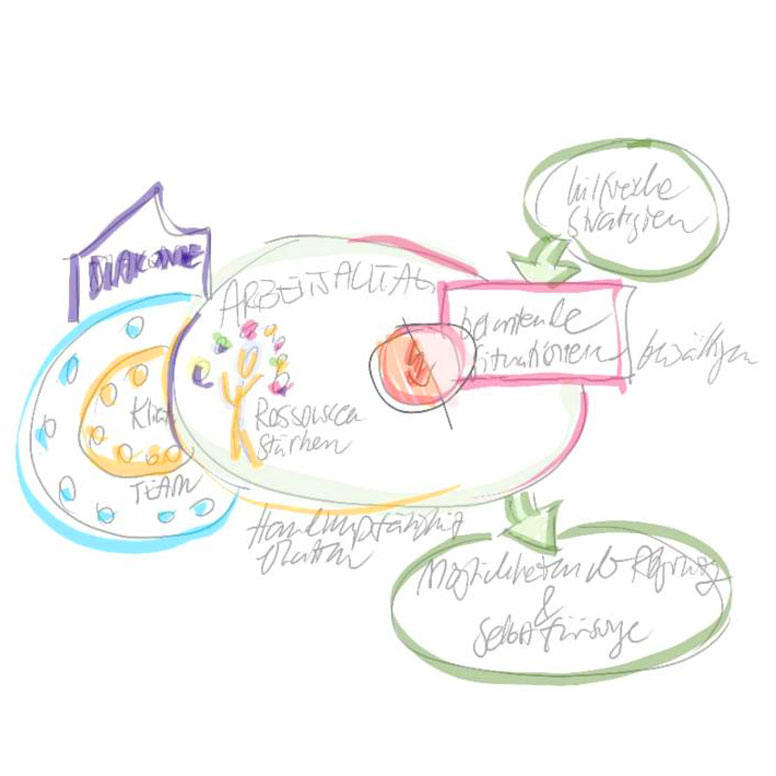 hilfreiche
Strategien
DIAKONIE
ARBEITSALLTAG
belastende
Situationen
bewältigen
Klien
Ressourcen
stärken
TEAM
Handlungsfähig
Möglichkeiten der
&
Selbstfürsorge